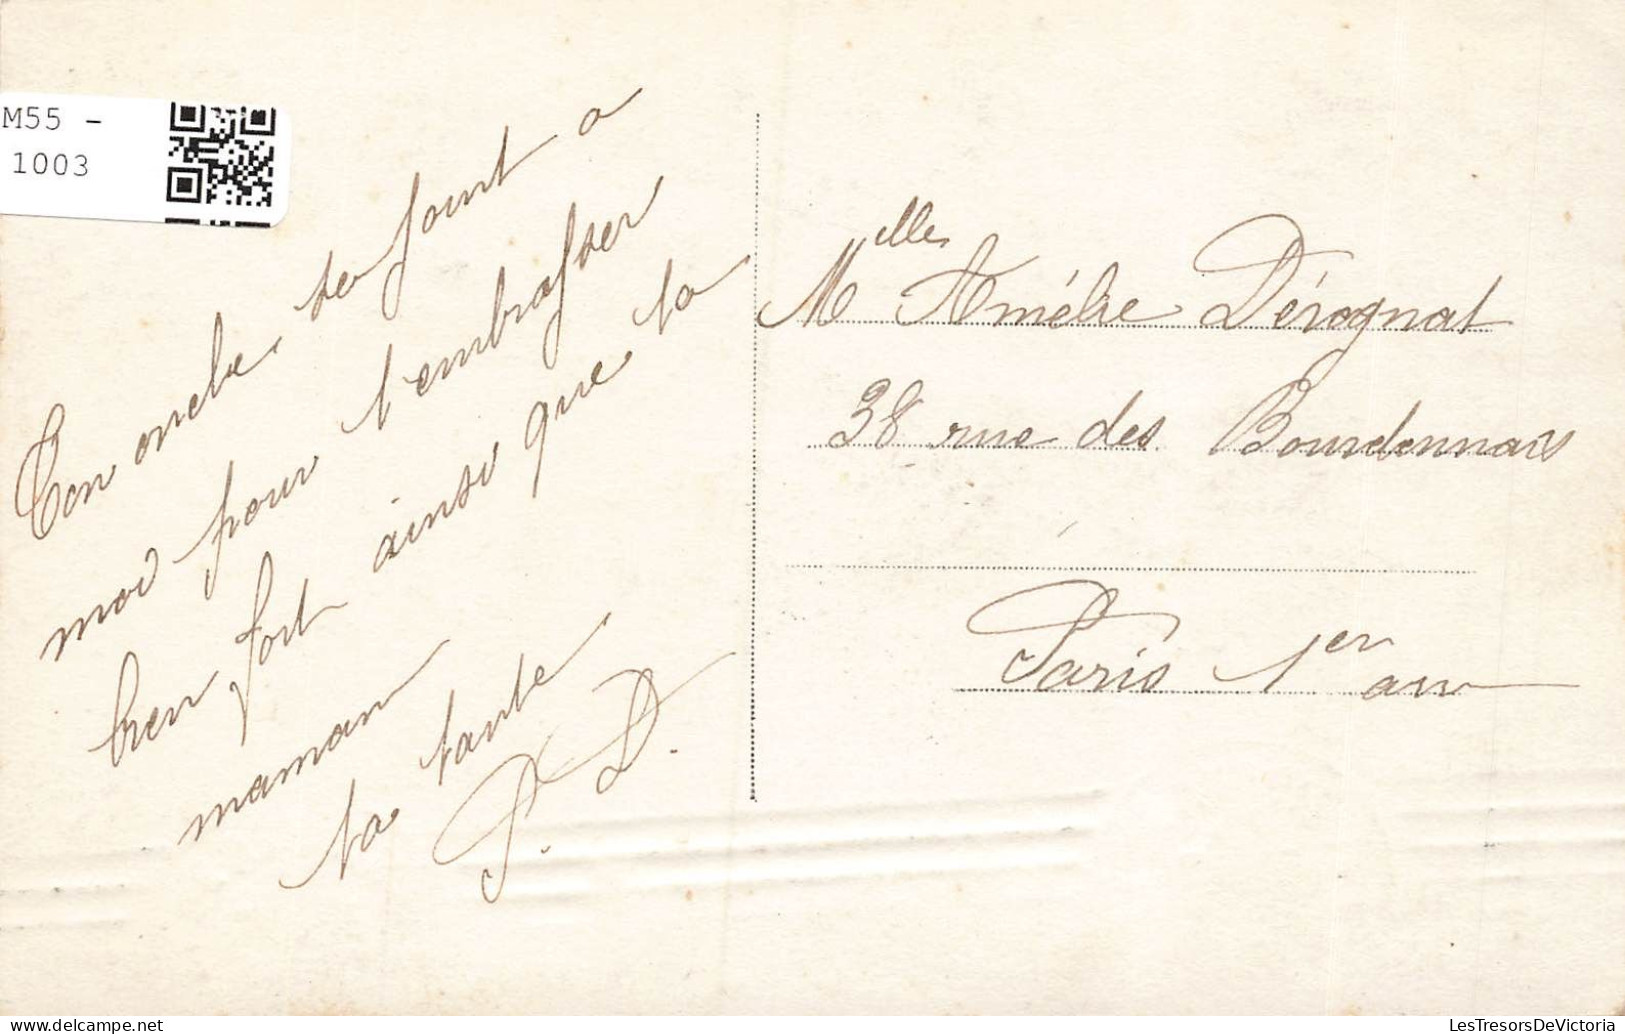 M55 -
1003
Ton oncle se joint a
moi pour t'embrasser
bien fort ainsi que ta
maman
ta tante
P. D.
Melle Amélie Dérognat
38 rue des Bourdonnais
Paris 1er arr
LesTresorsDeVictoria
delcampe.net